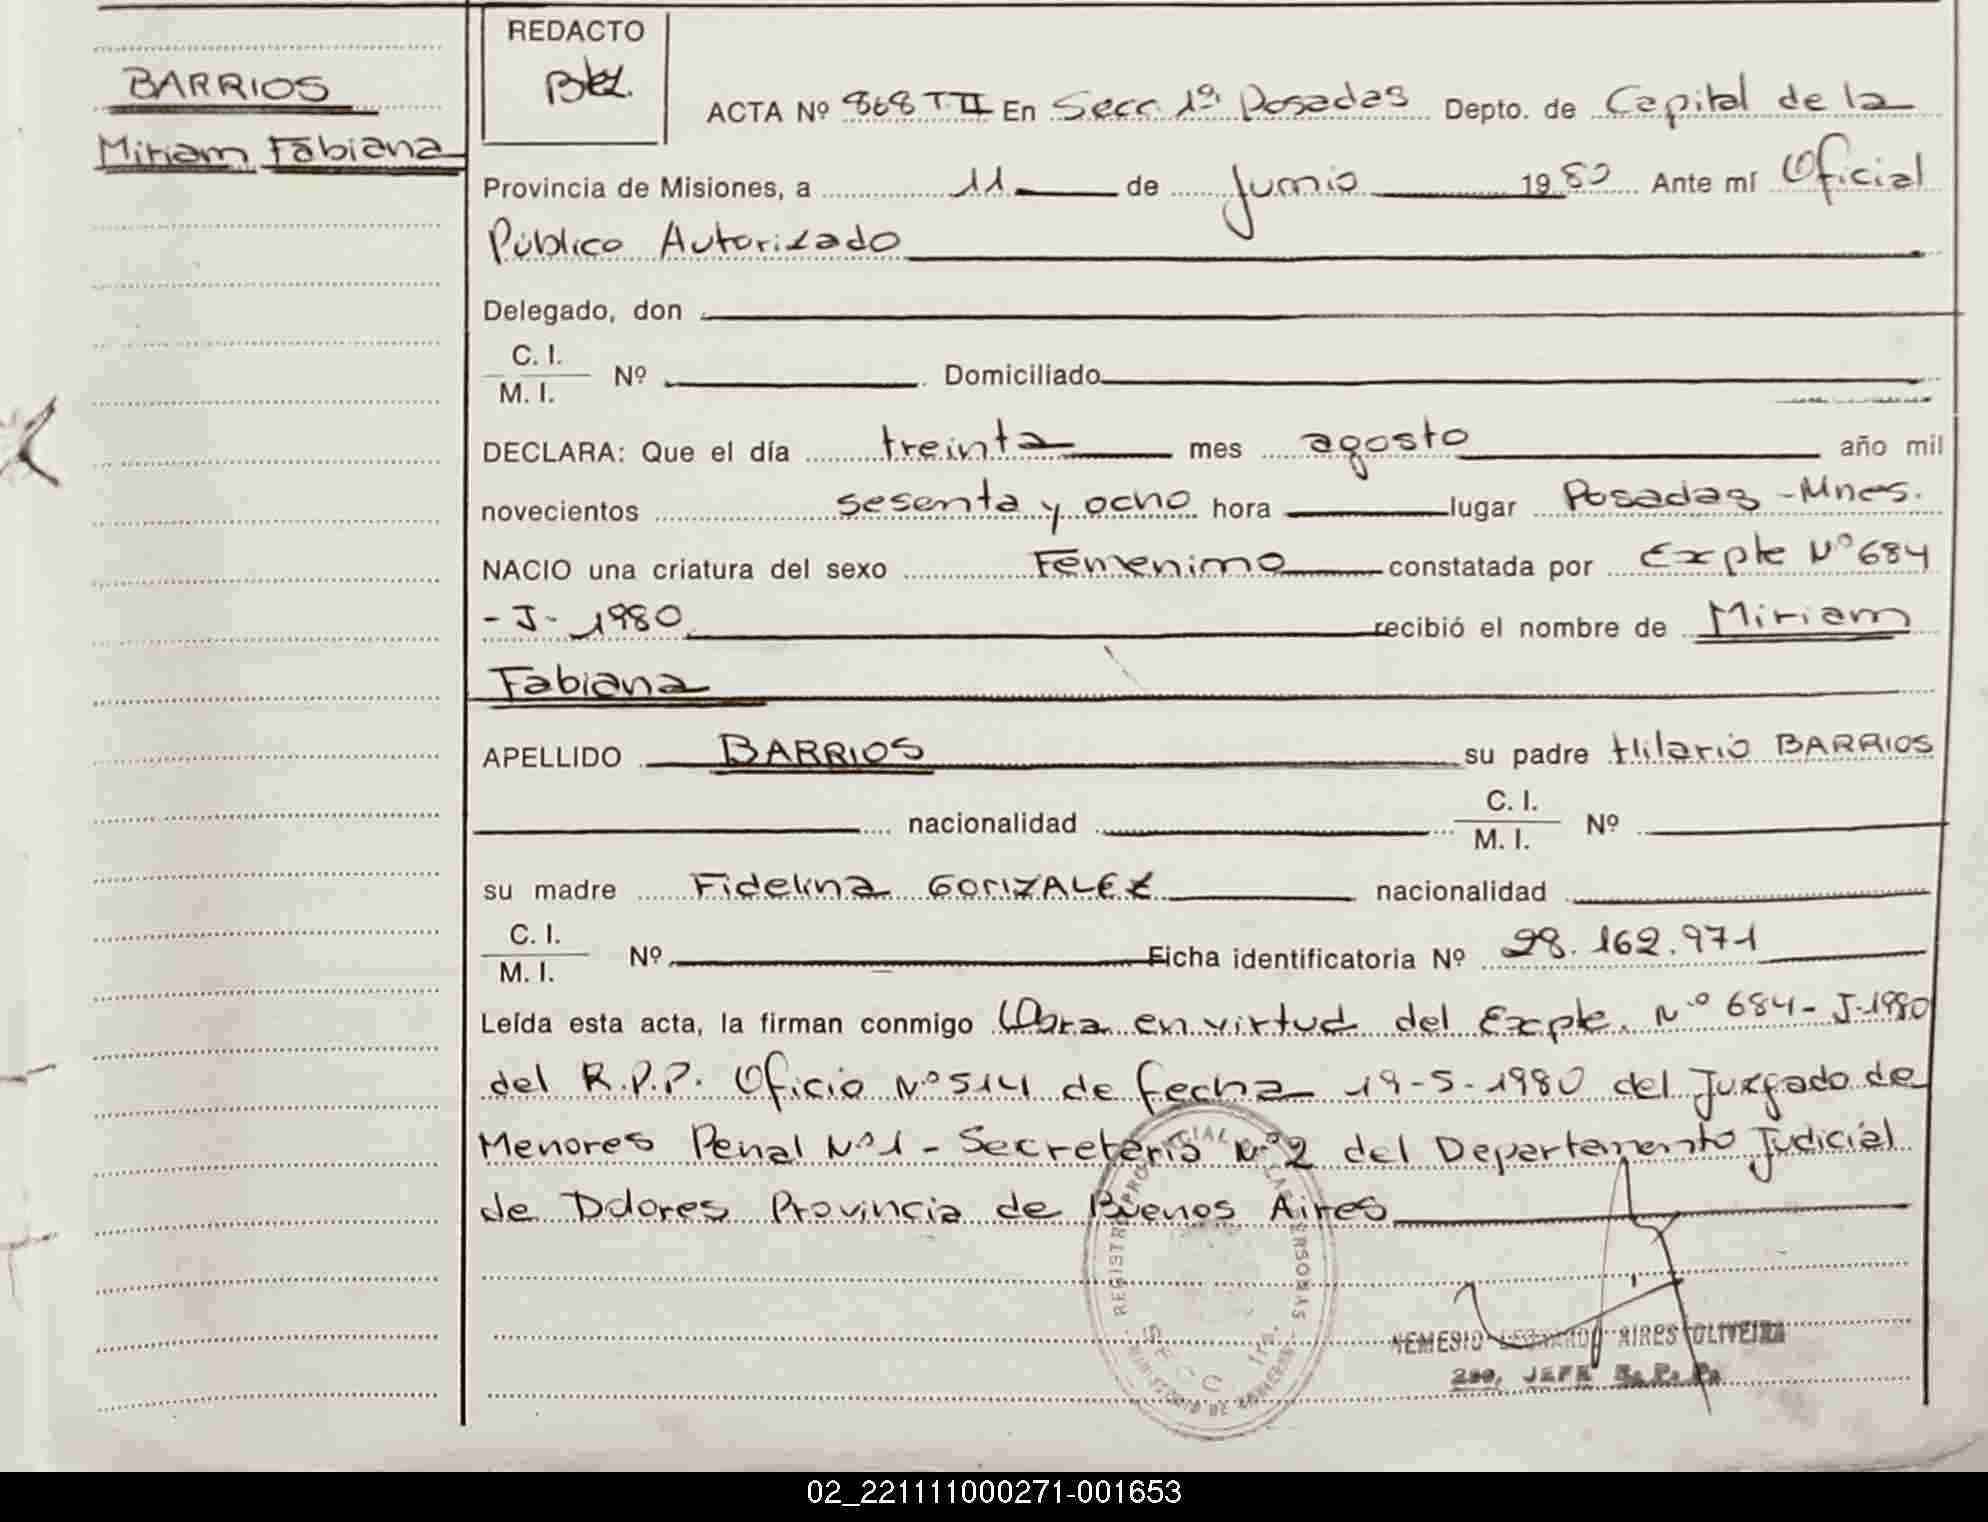 BARRIOS
Miriam Fabiana
REDACTO
ACTA Nº 868 T II En Secc 1ª Posadas Depto. de Capital de la
Provincia de Misiones, a 11 de Junio 1980 Ante mí Oficial
Público Autorizado
Delegado, don
C. I.
M. I. Nº Domiciliado
DECLARA: Que el día treinta mes agosto año mil
novecientos sesenta y ocho hora lugar Posadas - Mnes.
NACIO una criatura del sexo Femenino constatada por Expte Nº 684
- J - 1980 recibió el nombre de Miriam
Fabiana
APELLIDO BARRIOS su padre Hilario BARRIOS
nacionalidad C. I.
M. I. Nº
su madre Fidelina GONZALEZ nacionalidad
C. I.
M. I. Nº Ficha identificatoria Nº 28.162.971
Leída esta acta, la firman conmigo Obra en virtud del Expte. Nº 684 - J-1980
del R.P.P. Oficio Nº 514 de fecha 19-5-1980 del Juzgado de
Menores Penal Nº 1 - Secretaría Nº 2 del Departamento Judicial
de Dolores Provincia de Buenos Aires
REGISTRO PROVINCIAL DE LAS PERSONAS
SECC 1ra.
NEMESIO LEONARDO AIRES OLIVEIRA
2do. JEFE R. P. P.
02_221111000271-001653